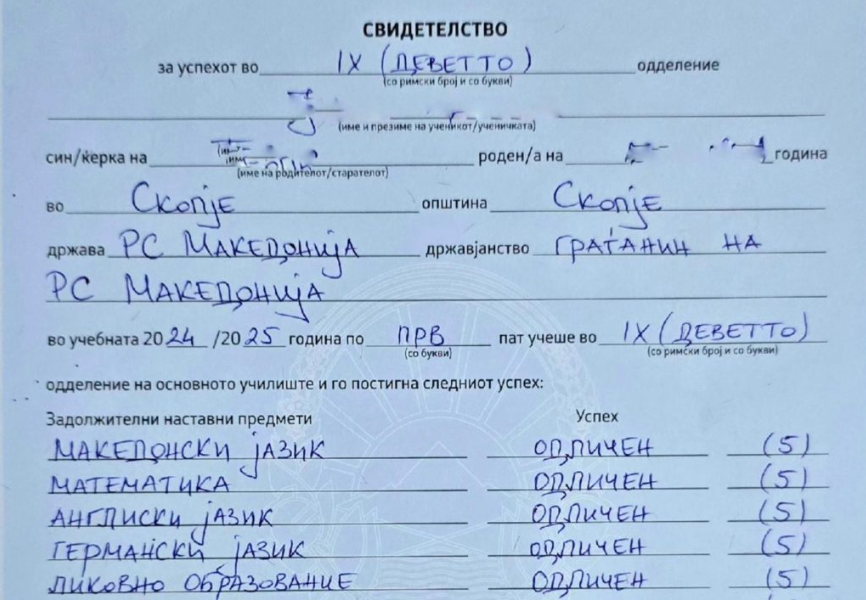 СВИДЕТЕЛСТВО
за успехот во IX (ДЕВЕТТО) одделение
(со римски број и со букви)
(име и презиме на ученикот/ученичката)
син/ќерка на роден/а на година
(име на родителот/старателот)
во Скопје општина Скопје
држава РС МАКЕДОНИЈА државјанство ГРАЃАНИН НА
РС МАКЕДОНИЈА
во учебната 2024/2025 година по ПРВ пат учеше во IX (ДЕВЕТТО)
(со букви) (со римски број и со букви)
одделение на основното училиште и го постигна следниот успех:
Задолжителни наставни предмети Успех
МАКЕДОНСКИ ЈАЗИК ОДЛИЧЕН (5)
МАТЕМАТИКА ОДЛИЧЕН (5)
АНГЛИСКИ ЈАЗИК ОДЛИЧЕН (5)
ГЕРМАНСКИ ЈАЗИК ОДЛИЧЕН (5)
ЛИКОВНО ОБРАЗОВАНИЕ ОДЛИЧЕН (5)